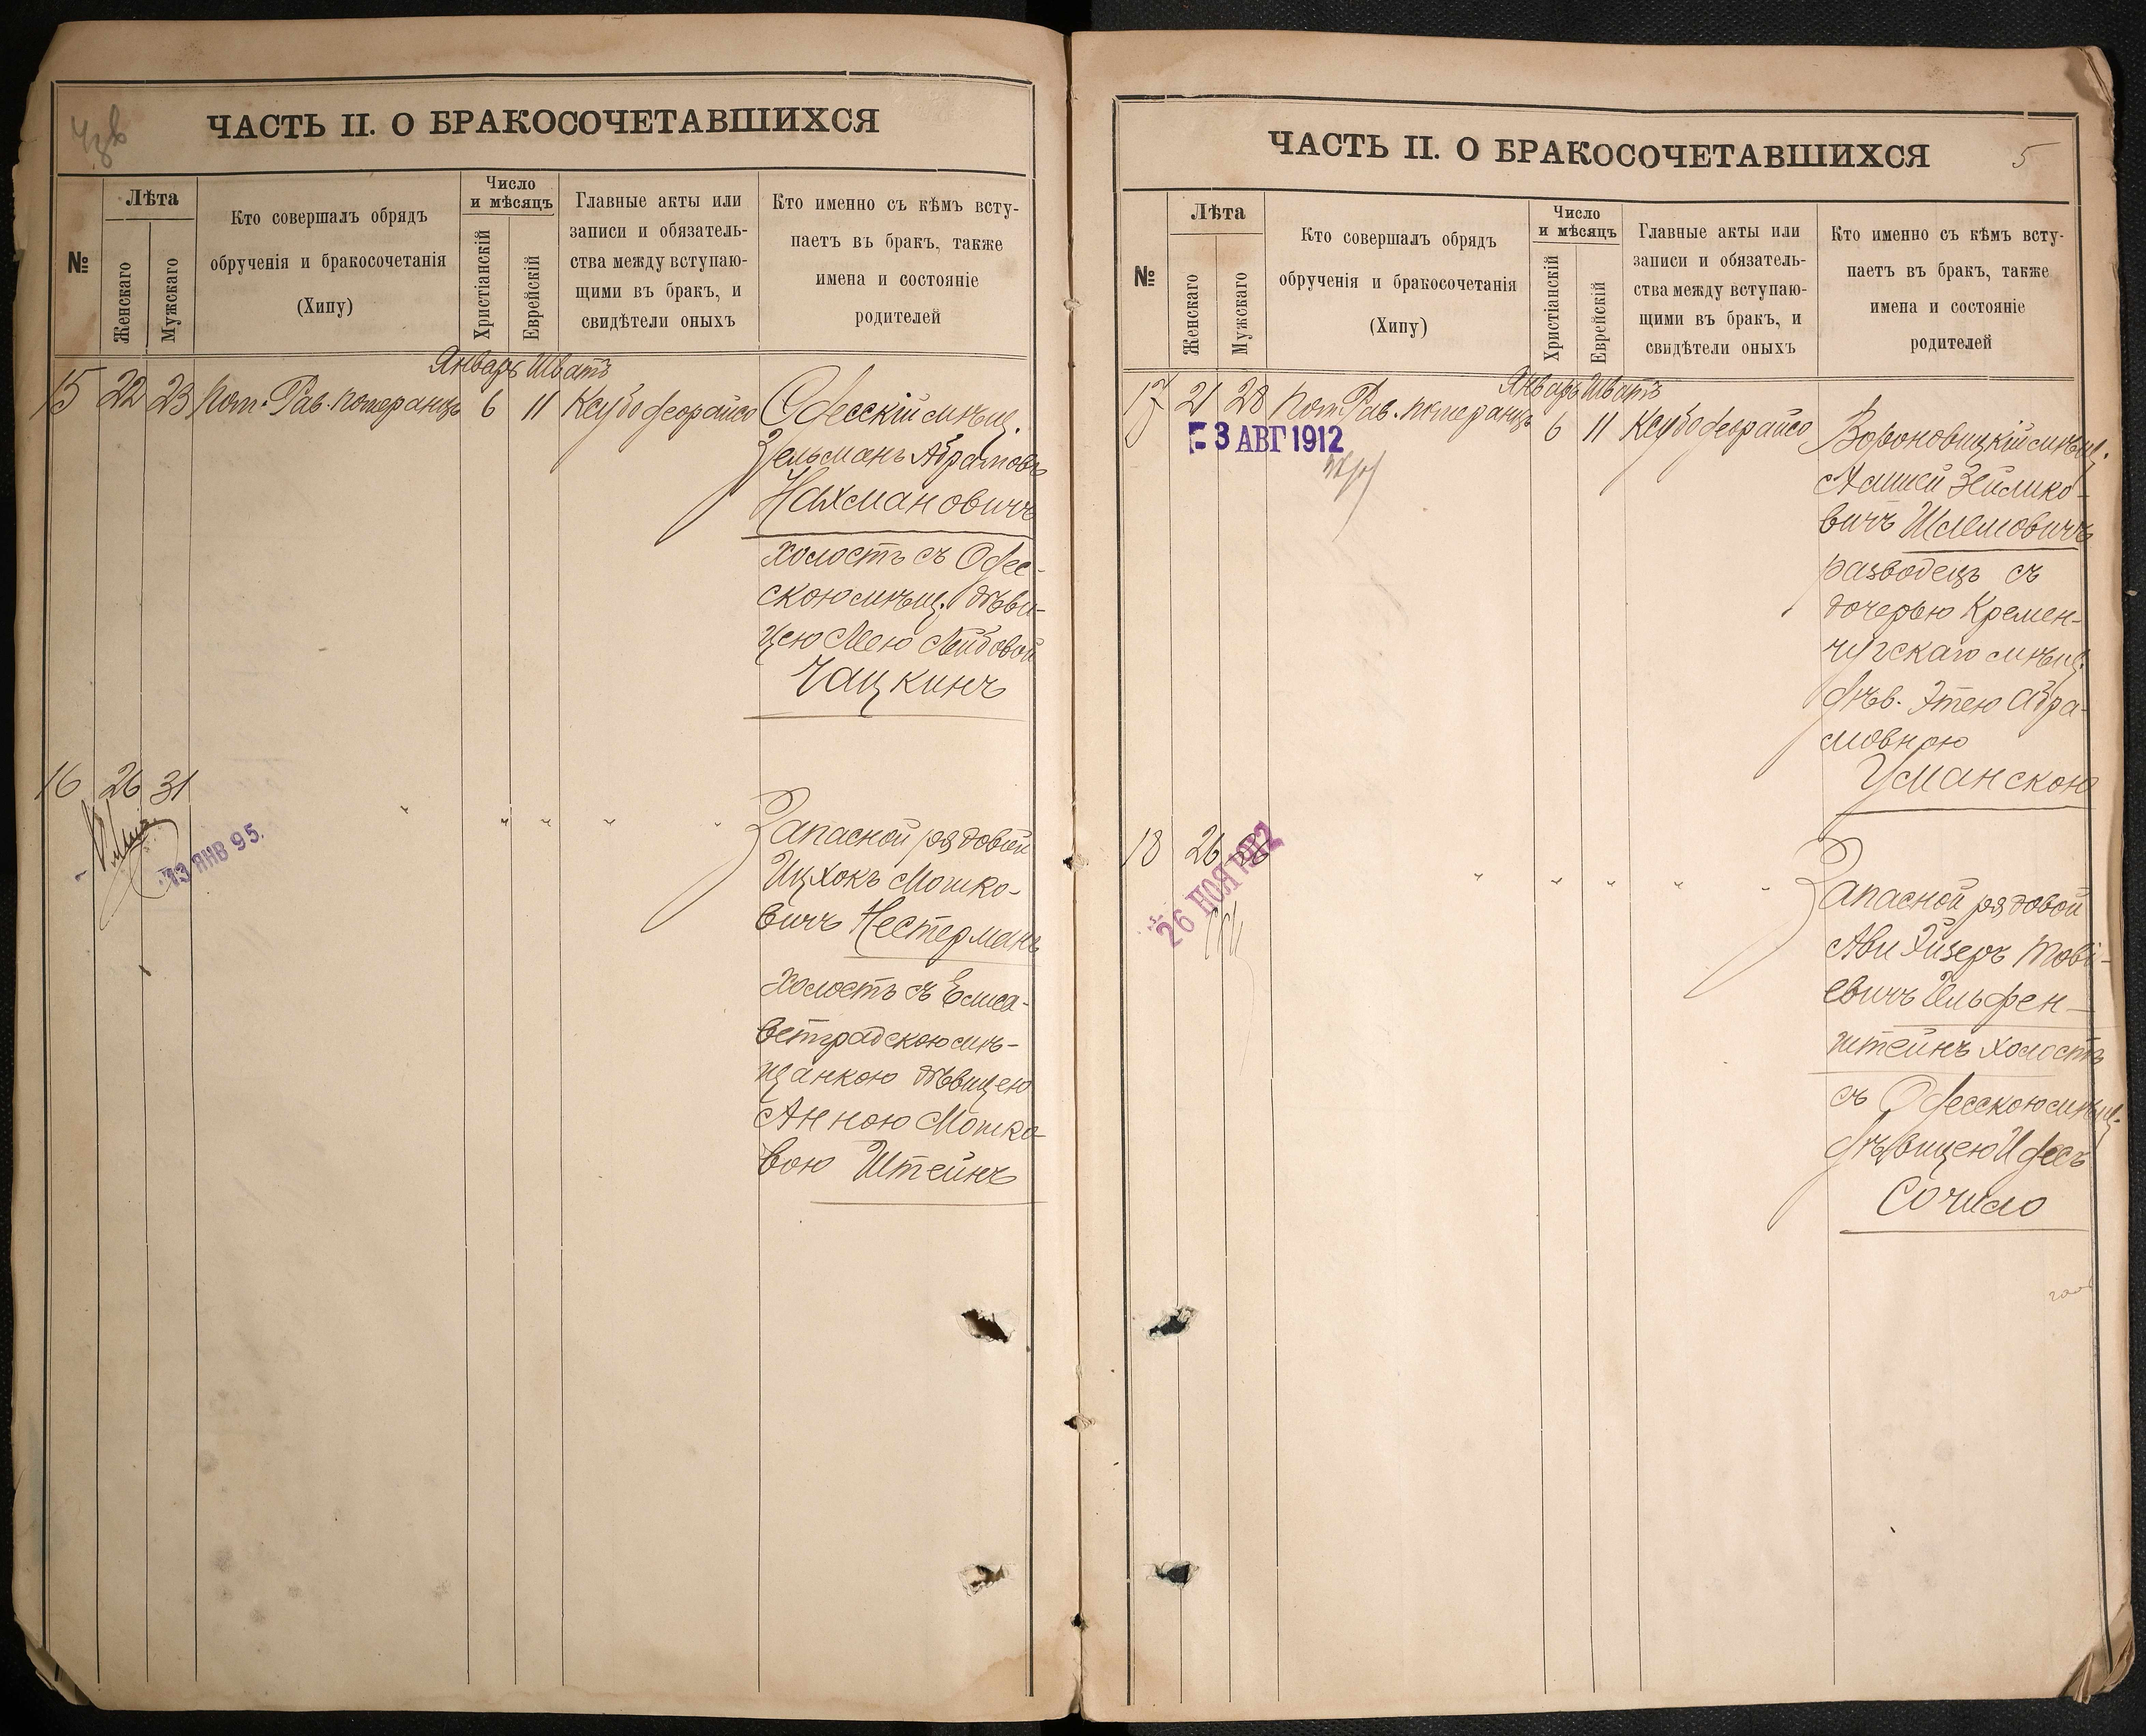 ЧАСТЬ II. О БРАКОСОЧЕТАВШИХСЯ
№
Лѣта
Женскаго
Мужскаго
Кто совершалъ обрядъ
обрученія и бракосочетанія
(Хипу)
Число
и мѣсяцъ
Христіанскій
Еврейскій
Главные акты или
записи и обязатель-
ства между вступаю-
щими въ бракъ, и
свидѣтели оныхъ
Кто именно съ кѣмъ всту-
паетъ въ бракъ, также
имена и состояніе
родителей
Январь Шватъ
15 22 23 Пом. Рав. Померанцъ 6 11 Ксубо деорайсо
Одесскій мѣщ.
Зельманъ Абрамовъ
Нахмановичъ
холостъ съ Одес-
скою мѣщ. дѣви-
цею Мею Лейбовой
Чацкинъ
16 26 31 " " " " "
13 ЯНВ 95.
Запасной рядовой
Ицхокъ Мошко-
вичъ Нестерманъ
холостъ съ Елиса-
ветградскою мѣ-
щанкою дѣвицею
Анною Мошко-
вою Штейнъ
ЧАСТЬ II. О БРАКОСОЧЕТАВШИХСЯ
5
№
Лѣта
Женскаго
Мужскаго
Кто совершалъ обрядъ
обрученія и бракосочетанія
(Хипу)
Число
и мѣсяцъ
Христіанскій
Еврейскій
Главные акты или
записи и обязатель-
ства между вступаю-
щими въ бракъ, и
свидѣтели оныхъ
Кто именно съ кѣмъ всту-
паетъ въ бракъ, также
имена и состояніе
родителей
Январь Шватъ
17 21 28 Пом. Рав. Померанцъ 6 11 Ксубо деорайсо
3 АВГ 1912
Вороновицкій мѣщ.
Зейлико-
вичъ Шлемовичъ
разводецъ съ
дочерью Кремен-
чугскаго мѣщ.
дѣв. Этею Абра-
мовною
Уманскою
18 26 " " " " "
26 НОЯ 1912
Запасной рядовой
Ави Эйзеръ Тові-
евичъ Гельфен-
штейнъ холостъ
съ Одесскою мѣщ.
дѣвицею Идесъ
Сочило